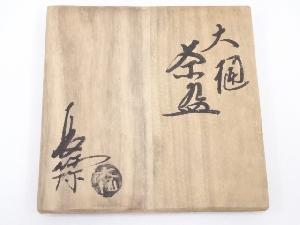 大樋
茶盌
長楽